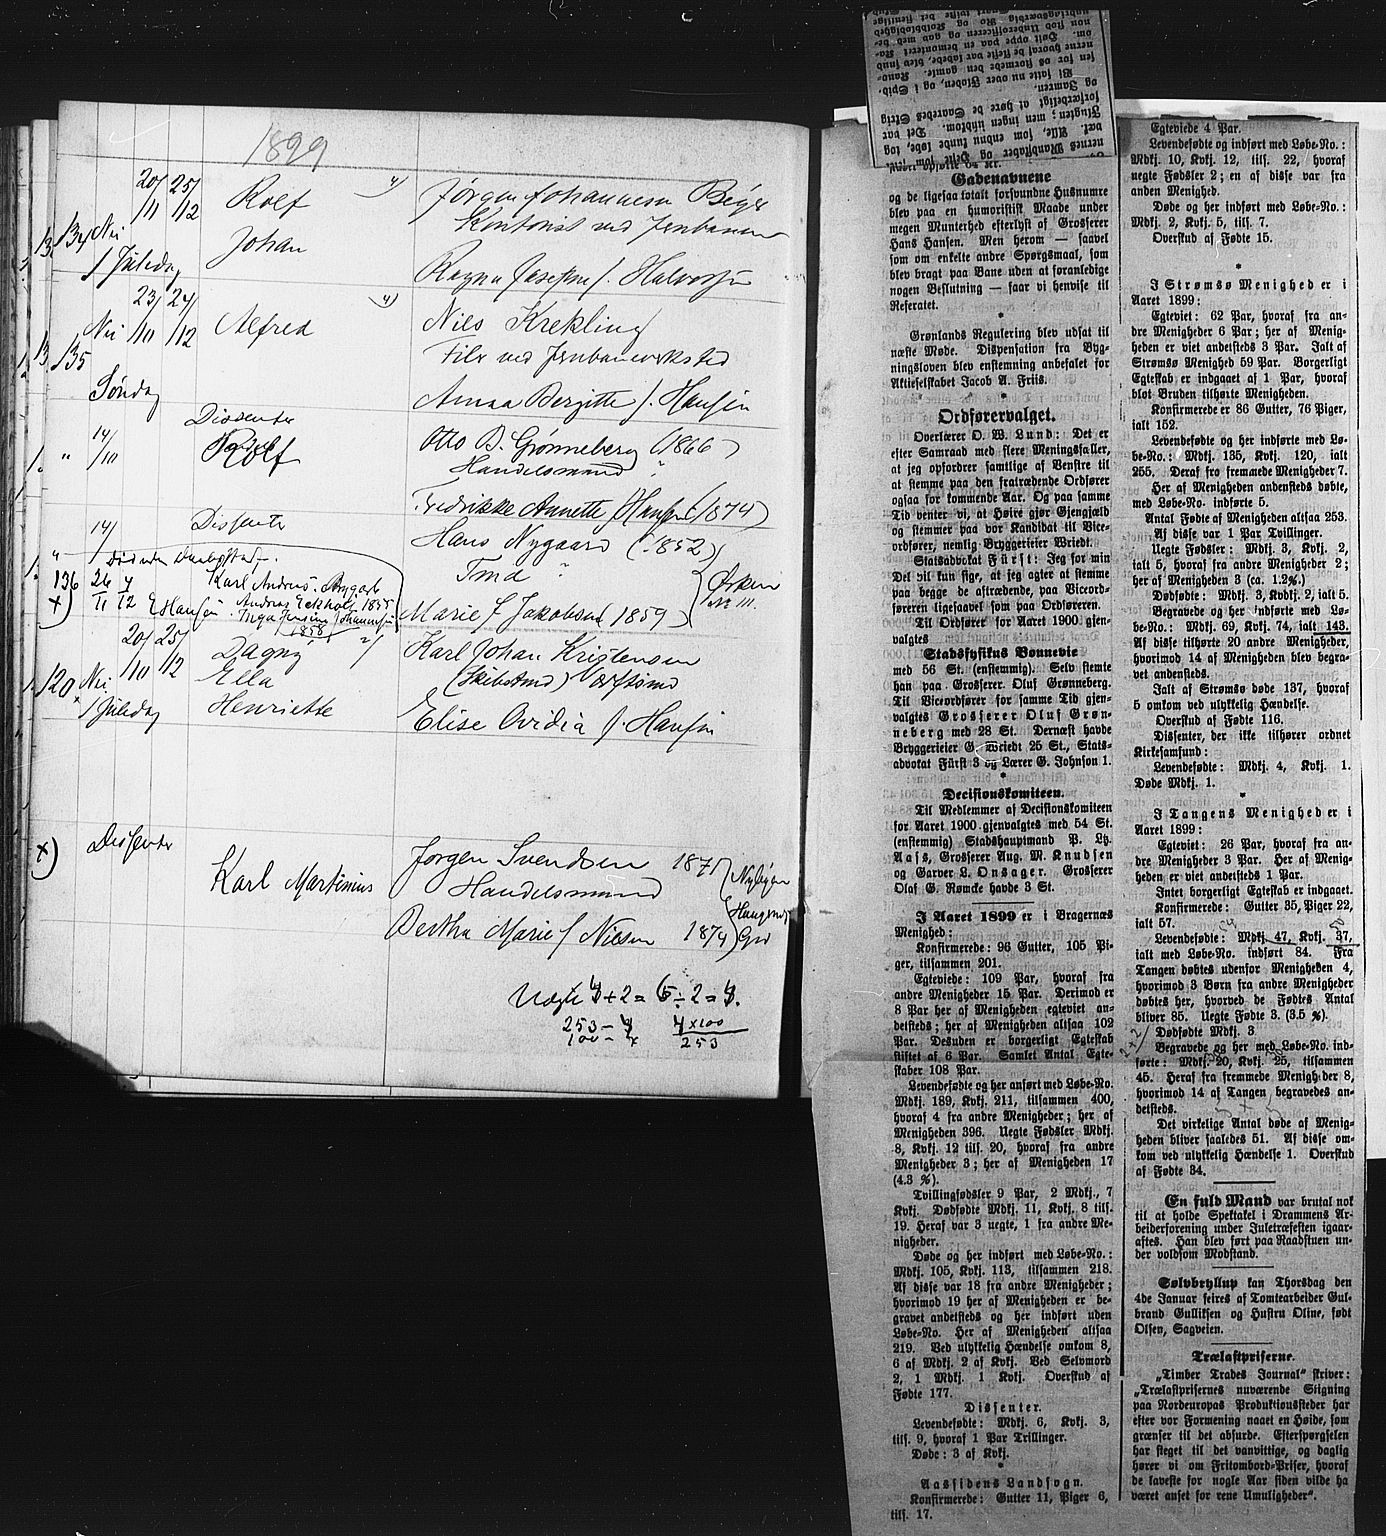 1899
20/11 25/12 Rolf Jørgen Johannesen
Kontorist ved Jernbanen
134 Johan
1 Juledag
Ragna Josefine f. Halvorsen
23/10 24/12 Alfred Niels Krekling
135 Filer ved Jernbaneverksted
Søndag Anna Bergitte f. Hansen
Dissenter
14/10 Rolf Otto B. Grønneberg (1866)
Handelsmand
Fredrikke Annette f. Hansen (1874)
14/ Dissenter
Hans Nygaard (1852)
136 26/11
Marie f. Jakobsen 1859
1858
20/10 25/12 Dagny Karl Johan Kristensen
120 Ella
1 Juledag Henriette Elise Ovidia f. Hansen
x) Dissenter
Karl Martinius Jørgen Svendsen 1871
Handelsmand
Berthe Marie f. Nilsen 1874
253
100
4 x 100
253
Gadenavnene
og de ligesaa totalt forsvundne Husnumre
blev paa en humoristisk Maade under
megen Munterhed efterlyst af Grosserer
Hans Hansen. Men herom — saavel
som om enkelte andre Spørgsmaal, som
blev bragt paa Bane uden at foranledige
nogen Beslutning — faar vi henvise til
Referatet.
*
Grønlands Regulering blev udsat til
næste Møde. Dispensation fra Byg-
ningsloven blev enstemning anbefalet for
Aktieselskabet Jacob A. Friis.
*
Ordførervalget.
Overlærer O. W. Lund: Det er
efter Samraad med flere Meningsfæller,
at jeg opfordrer samtlige af Venstre til
at stemme paa den fratrædende Ordfører
ogsaa for kommende Aar. Og paa samme
Tid venter vi, at Høire gjør Gjengjæld
og stemmer paa vor Kandidat til Vice-
ordfører, nemlig Bryggerieier Wriedt.
Statsadvokat Fürst: Jeg for min
Del vil kun sige, at jeg agter at stemme
paa begge de aftrædende, paa Viceord-
føreren ligesaavel som paa Ordføreren.
Til Ordfører for Aaret 1900 gjen-
valgtes
Stadsfysikus Bonnevie
med 56 St. (enstemmig). Selv stemte
han paa Grosserer. Oluf Grønneberg.
Til Viceordfører for samme Tid gjen-
valgtes Grosserer Oluf Grøn-
neberg med 28 St. Dernæst havde
Bryggerieier G Wriedt 25 St., Stats-
advokat Fürst 3 og Lærer G. Johnson 1.
*
Decisionskomiteen.
Til Medlemmer af Decisionskomiteen
for Aaret 1900 gjenvalgtes med 54 St.
(enstemmig) Stadshauptmand P. Ly.
Aass, Grosserer Aug. M. Knudsen
og Garver L. Onsager. Grosserer
Olaf G. Rømcke havde 3 St.
I Aaret 1899 er i Bragernæs
Menighed:
Konfirmerede: 96 Gutter, 105 Pi-
ger, tilsammen 201.
Egteviede: 109 Par, hvoraf fra
andre Menigheder 15 Par. Derimod er
8 Par her af Menigheden egteviet an-
detsteds; her af Menigheden altsaa 102
Par. Desuden er borgerligt Egteskab
stiftet af 6 Par. Samlet Antal Egte-
skaber 108 Par.
Levendefødte og her anført med Løbe-No.
Mdkj. 189, Kvkj. 211, tilsammen 400,
hvoraf 4 fra andre Menigheder; her af
Menigheden 396. Uegte Fødsler Mdkj.
8, Kvkj. 12 tils. 20, hvoraf fra andre
Menigheder 3; her af Menigheden 17
(4.3 %).
Tvillingfødsler 9 Par, 2 Mdkj., 7
Kvkj. Dødfødte Mdkj. 11, Kvkj. 8 tils.
19. Heraf var 3 uegte, 1 fra andre Me-
nigheder.
Døde og her indført med Løbe-No.:
Mdkj. 105, Kvkj. 113, tilsammen 218.
Af disse var 18 fra andre Menigheder;
hvorimod 19 her af Menigheden er be-
gravet andetsteds og her indført uden
Løbe-No. Her af Menigheden altsaa
219. Ved ulykkelig Hændelse omkom 8,
6 af Mdkj. 2 af Kvkj. Ved Selvmord
2, 1 Mdkj. 1 Kvkj. Overskud af
Fødte 177.
Dissenter.
Levendefødte: Mdkj. 6, Kvkj. 3,
tils. 9, hvoraf 1 Par Trillinger.
Døde: 3 af Kvkj.
*
Aassidens Landsogn.
Konfirmerede: Gutter 11, Piger 6,
tils. 17.
Egteviede 4 Par.
Levendefødte og indført med Løbe-No.:
Mdkj. 10, Kvkj. 12, tils. 22, hvoraf
uegte Fødsler 2; en af disse var fra
anden Menighed.
Døde og her indført med Løbe-No.:
Mdkj. 2, Kvkj. 5, tils. 7.
Overskud af Fødte 15.
*
I Strømsø Menighed er i
Aaret 1899:
Egteviet: 62 Par, hvoraf fra an-
dre Menigheder 6 Par; her af Menig-
heden er viet andetsteds 3 Par. Ialt af
Strømsø Menighed 59 Par. Borgerligt
Egteskab er indgaaet af 1 Par, hvoraf
blot Bruden tilhørte Menigheden.
Konfirmerede er 86 Gutter, 76 Piger,
ialt 152.
Levendefødte og her indførte med Lø-
be-No.: Mdkj. 135, Kvkj. 120, ialt
255. Deraf fro fremmede Menigheder 7.
Her af Menigheden andensteds døbte,
med Løbe-No. indførte 5.
Antal Fødte af Menigheden altsaa 253.
Af disse var 1 Par Tvillinger.
Uegte Fødsler: Mdkj. 3, Kvkj. 2,
ialt 5, hvoraf fra andre Menigheder 2;
her af Menigheden 3 (ca. 1.2%.)
Dødfødte: Mdkj. 3, Kvkj. 2, ialt 5.
Begravede og her indførte med Lø-
be-No.: Mdkj. 69, Kvkj. 74, ialt 143.
Af disse tilhørte 20 andre Menigheder,
hvorimod 14 af Menigheden blev begra-
vet andensteds.
Ialt af Strømsø døde 137, hvoraf
5 omkom ved ulykkelig Hændelse.
Overskud af Fødte 116.
Dissenter, der ikke tilhører ordnet
Kirkesamfund:
Levendefødte: Mdkj. 4, Kvkj. 1.
Døde Mdkj. 1.
*
I Tangens Menighed er i
Aaret 1899:
Egteviet: 26 Par, hvoraf fra an-
dre Menigheder 3 Par. Her af Menig-
heden er viet andetsteds 1 Par.
Intet borgerligt Egteskab er indgaaet.
Konfirmerede: Gutter 35, Piger 22,
ialt 57.
Levendefødte: Mdkj. 47, Kvkj. 37,
ialt med Løbe-No. indført 84. Fra
Tangen døbtes udenfor Menigheden 4,
hvorimod 3 Børn fra andre Menigheder
døbtes her, hvorved de Fødtes Antal
bliver 85. Uegte Fødte 3. (3.5 %).
Dødfødte Mdkj. 3
Begravede og her med Løbe-No. ind-
førte: Mdkj. 20, Kvkj. 25, tilsammen
45. Heraf fra fremmede Menigheder 8,
hvorimod 14 af Tangen begravedes an-
detsteds.
Det virkelige Antal døde af Menig-
heden bliver saaledes 51. Af disse om-
kom ved ulykkelig Hændelse 1. Overskud
af Fødte 34.
En fuld Mand var brutal nok
til at holde Spektakel i Drammens Ar-
beiderforening under Juletræfesten igaar-
aftes. Han blev ført paa Raadstuen un-
der voldsom Modstand.
Sølvbryllup kan Thorsdag den
4de Januar feires af Tomtearbeider Gul-
brand Gulliksen og Hustru Oline, født
Olsen, Sagveien.
Trælastpriserne.
„Timber Trades Journal“ skriver:
„Trælastprisernes nuværende Stigning
paa Nordeuropas Produktionssteder har
efter vor Formening naaet en Høide, som
grænser til det absurde. Efterspørgselen
har steget til det vanvittige, og daglig
hører vi om Fritombord-Priser, hvoraf
de laveste for nogle Aar siden vilde ha
været anset for rene Umuligheder“.